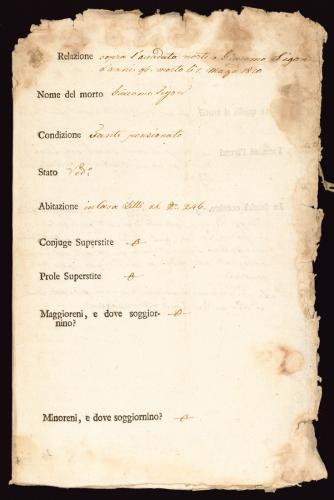 Relazione sopra l'accaduta morte di Giacomo Sigon
d'anni 96. morto li 1. Marzo 1810
Nome del morto Giacomo Sigon
Condizione Fante pensionato
Stato Ved.º
Abitazione in Casa al Nº 246.
Conjuge Superstite
Prole Superstite
Maggioreni, e dove soggior-
nino?
Minoreni, e dove soggiornino?